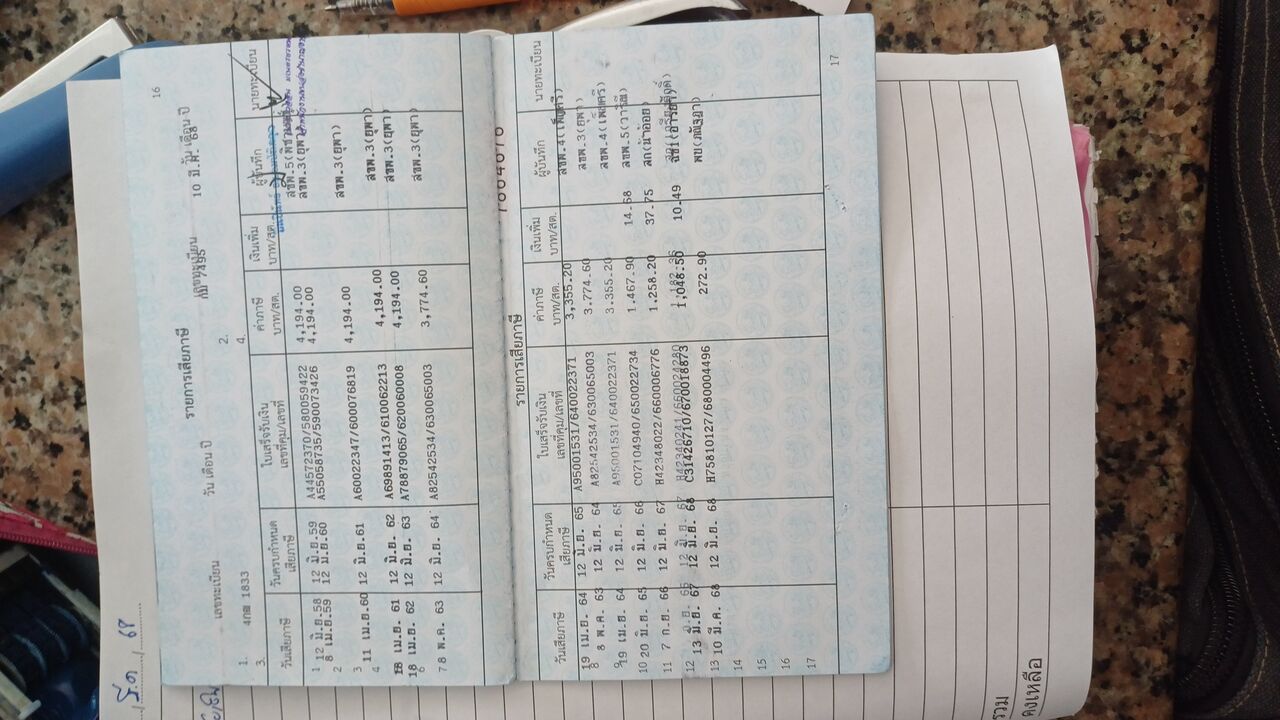 16
รายการเสียภาษี
เลขทะเบียน วัน เดือน ปี เลขทะเบียน วัน เดือน ปี
1. 4กฒ 1833 2. 7495 10 มี.ค. 68
3. 4.
วันเสียภาษี วันครบกำหนดเสียภาษี ใบเสร็จรับเงิน เลขที่คุม/เลขที่ ค่าภาษี บาท/สต. เงินเพิ่ม บาท/สต. ผู้บันทึก นายทะเบียน
1 12 มิ.ย.58 12 มิ.ย.59 A44572370/580059422 4,194.00
8 เม.ย.59 12 มิ.ย.60 A55058735/590073426 4,194.00 สขพ.3(ยุพา)
2
3 11 เม.ย.60 12 มิ.ย.61 A60022347/600076819 4,194.00 สขพ.3(ยุพา)
4
18 เม.ย. 61 12 มิ.ย. 62 A69891413/610062213 4,194.00 สขพ.3(ยุพา)
18 เม.ย. 62 12 มิ.ย. 63 A78879065/620060008 4,194.00 สขพ.3(ยุพา)
6
7 8 พ.ค. 63 12 มิ.ย. 64 A82542534/630065003 3,774.60 สขพ.3(ยุพา)
รายการเสียภาษี
วันเสียภาษี วันครบกำหนดเสียภาษี ใบเสร็จรับเงิน เลขที่คุม/เลขที่ ค่าภาษี บาท/สต. เงินเพิ่ม บาท/สต. ผู้บันทึก นายทะเบียน
19 เม.ย. 64 12 มิ.ย. 65 A95001531/640022371 3,355.20
8 8 พ.ค. 63 12 มิ.ย. 64 A82542534/630065003 3,774.60 สขพ.3(ยุพา)
9 19 เม.ย. 64 12 มิ.ย. 65 A95001531/640022371 3,355.20
10 20 มิ.ย. 65 12 มิ.ย. 66 C07104940/650022734 1,467.90 14.68
11 7 ก.ย. 66 12 มิ.ย. 67 H42348022/660006776 1,258.20 37.75 สก(น้าอ้อย)
12 13 มิ.ย. 67 12 มิ.ย. 68 C31426710/670018873 1,048.50 10.49
13 10 มี.ค. 68 12 มิ.ย. 68 H75810127/680004496 272.90
14
15
16
17
17
รวม
คงเหลือ